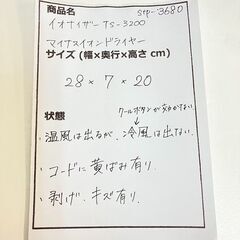 商品名 stp-3680
イオナイザー TS-3200
マイナスイオンドライヤー
サイズ (幅×奥行×高さ cm)
28×7×20
クールボタンが効かない
状態
・温風は出るが、冷風は出ない。
・コードに黄ばみ有り.
・剥げ、キズ有り.